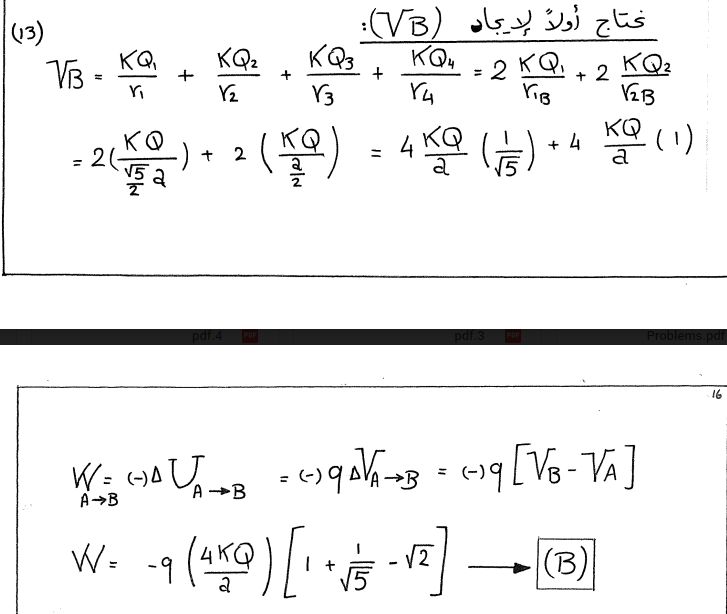 (13) نحتاج أولاً لإيجاد (VB):
VB = KQ₁/r₁ + KQ₂/r₂ + KQ₃/r₃ + KQ₄/r₄ = 2 KQ₁/r₁B + 2 KQ₂/r₂B
= 2(KQ/(√5/2 a)) + 2(KQ/(a/2)) = 4 KQ/a (1/√5) + 4 KQ/a (1)
pdf.4 PDF pdf.3 PDF Problems.pdf
16
W A→B = (-)Δ U A→B = (-) q ΔV A→B = (-) q [VB - VA]
W = -q (4KQ/a) [1 + 1/√5 - √2] ⟶ (B)